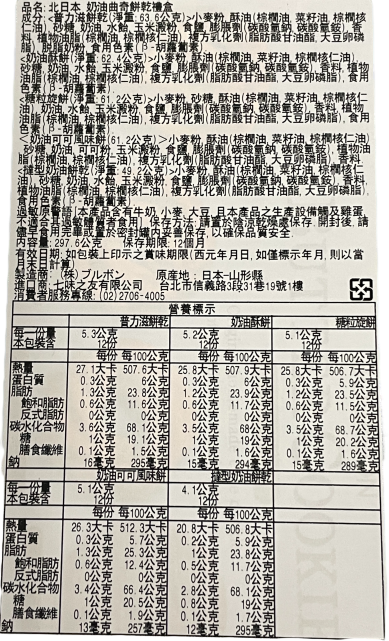 品名:北日本 奶油曲奇餅乾禮盒
成分:<普力滋餅乾(淨重:63.6公克)>小麥粉,酥油(棕櫚油,菜籽油,棕櫚核仁油),砂糖,奶油,水飴,玉米澱粉,食鹽,膨脹劑(碳酸氫鈉,碳酸氫銨),香料,植物油脂(棕櫚油,棕櫚核仁油),複方乳化劑(脂肪酸甘油酯,大豆卵磷脂),脫脂奶粉,食用色素(β-胡蘿蔔素).
<奶油酥餅(淨重:62.4公克)>小麥粉,酥油(棕櫚油,菜籽油,棕櫚核仁油),
砂糖,奶油,水飴,玉米澱粉,食鹽,膨脹劑(碳酸氫鈉,碳酸氫銨),香料,植物油脂(棕櫚油,棕櫚核仁油),複方乳化劑(脂肪酸甘油酯,大豆卵磷脂),食用色素(β-胡蘿蔔素).
<糖粒旋餅(淨重:61.2公克)>小麥粉,砂糖,酥油(棕櫚油,菜籽油,棕櫚核仁油),奶油,水飴,玉米澱粉,食鹽,膨脹劑(碳酸氫鈉,碳酸氫銨),香料,植物油脂(棕櫚油,棕櫚核仁油),複方乳化劑(脂肪酸甘油酯,大豆卵磷脂),食用色素(β-胡蘿蔔素).
<奶油可可風味餅(61.2公克)>小麥粉,酥油(棕櫚油,菜籽油,棕櫚核仁油),砂糖,奶油,可可粉,玉米澱粉,食鹽,膨脹劑(碳酸氫鈉,碳酸氫銨),植物油脂(棕櫚油,棕櫚核仁油),複方乳化劑(脂肪酸甘油酯,大豆卵磷脂),香料.
<撻型奶油餅乾(淨重:49.2公克)>小麥粉,酥油(棕櫚油,菜籽油,棕櫚核仁油),砂糖,奶油,水飴,玉米澱粉,食鹽,膨脹劑(碳酸氫鈉,碳酸氫銨),香料,植物油脂(棕櫚油,棕櫚核仁油),複方乳化劑(脂肪酸甘油酯,大豆卵磷脂),食用色素(β-胡蘿蔔素).
過敏原警語:本產品含有牛奶,小麥,大豆,且本產品之生產設備觸及雞蛋,
不適合其過敏體質者食用.保存方式:請置於陰涼乾燥處保存.開封後,請
儘早食用完畢或置於密封罐內妥善保存,以確保品質安全.
內容量:297.6公克 保存期限:12個月
有效日期:如包裝上印示之賞味期限(西元年月日,如僅標示年月,則以當
月末日計算)
製造商:(株)ブルボン 原產地:日本-山形縣
進口商:七味之友有限公司 台北市信義路3段31巷19號1樓
消費者服務專線:(02)2706-4005
營養標示
普力滋餅乾 奶油酥餅 糖粒旋餅
每一份量 5.3公克 5.2公克 5.1公克
本包裝含 12份 12份 12份
每份 每100公克 每份 每100公克 每份 每100公克
熱量 27.1大卡 507.6大卡 25.8大卡 507.9大卡 25.8大卡 506.7大卡
蛋白質 0.3公克 6公克 0.3公克 6公克 0.3公克 5.9公克
脂肪 1.3公克 23.8公克 1.2公克 23.9公克 1.2公克 23.5公克
飽和脂肪 0.6公克 11.6公克 0.6公克 11.7公克 0.6公克 11.5公克
反式脂肪 0公克 0公克 0公克 0公克 0公克 0公克
碳水化合物 3.6公克 68.1公克 3.5公克 68公克 3.5公克 68.7公克
糖 1公克 19.1公克 1公克 19公克 1公克 20.2公克
膳食纖維 0.1公克 1.5公克 0.1公克 1.5公克 0.1公克 1.6公克
鈉 16毫克 295毫克 15毫克 294毫克 15毫克 289毫克
奶油可可風味餅 撻型奶油餅乾
每一份量 5.1公克 4.1公克
本包裝含 12份 12份
每份 每100公克 每份 每100公克
熱量 26.3大卡 512.3大卡 20.8大卡 506.8大卡
蛋白質 0.3公克 5.7公克 0.2公克 5.9公克
脂肪 1.3公克 25.3公克 1公克 23.8公克
飽和脂肪 0.6公克 12.4公克 0.5公克 11.7公克
反式脂肪 0公克 0公克 0公克 0公克
碳水化合物 3.4公克 66.4公克 2.8公克 68.1公克
糖 1公克 20.5公克 0.8公克 19公克
膳食纖維 0.1公克 1.9公克 0.1公克 1.7公克
鈉 13毫克 257毫克 12毫克 295毫克